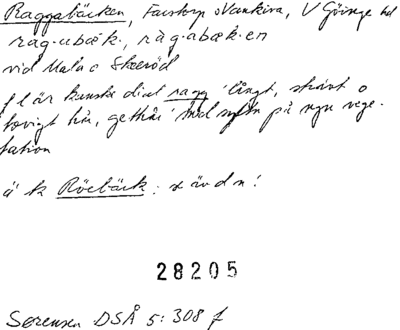 Raggabäcken, Farstorp o Vankiva, V Göinge hd
rag·ubæk·, ràg·abæk·en
vid Mala o Skeröd
f l är kanske dial ragg 'långt, strävt o
tovigt hår, gethår' med syftn på ngn vege-
tation
ä k Röebäck : s ävdn!
28205
Sørensen DSÅ 5: 308 f